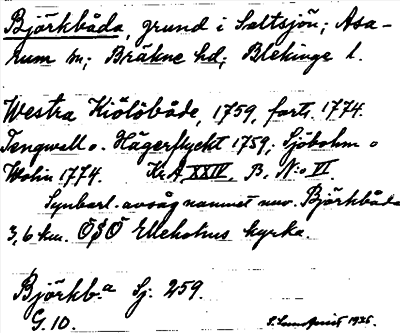 Björkbåda, grund i Saltsjön; Asa-
rum sn; Bräkne hd; Blekinge l.
Westra Kiölöbåde, 1759, forts. 1774.
Tengwall o. Hägerflyckt 1759; Sjöbohm o
Wohn 1774. Kr.A XXIV. B. N:o VI.
Synbarl. avsåg namnet nuv. Björkbåda
3,6 km. ÖSÖ Elleholms kyrka.
Björkb.a Sj. 259.
G. 10. 1935.